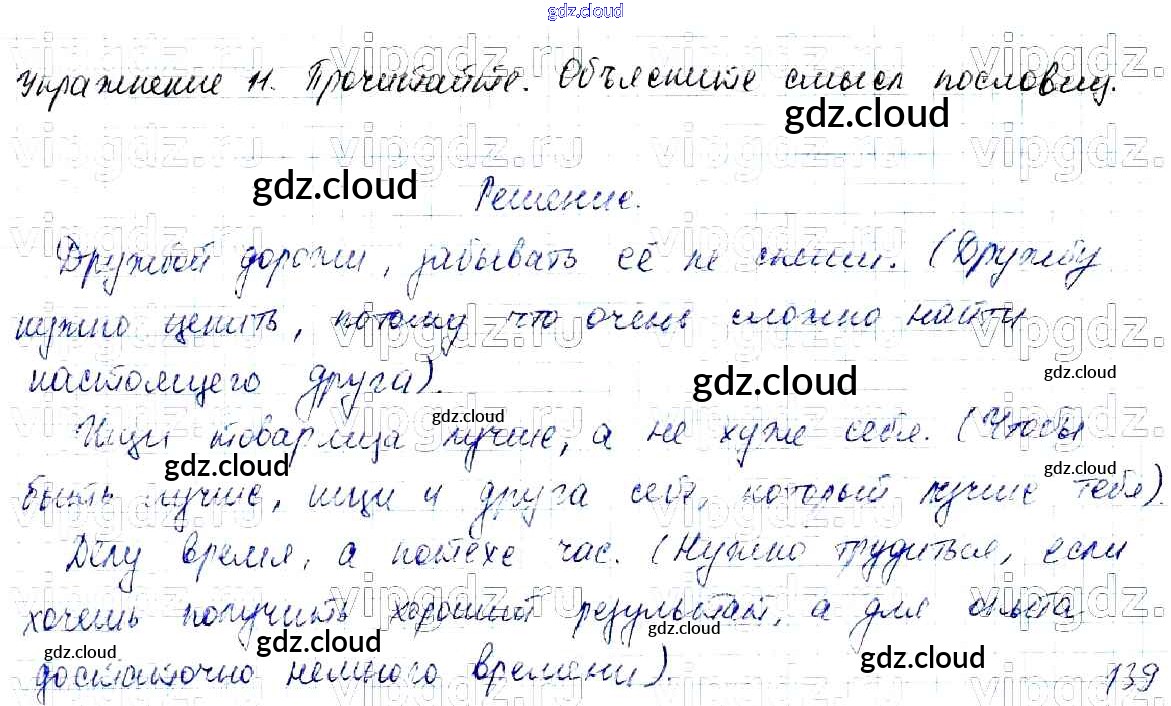 gdz.cloud
Упражнение 11. Прочитайте. Объясните смысл пословиц.
gdz.cloud
gdz.cloud
Решение.
Дружбой дорожи, забывать её не спеши. (Дружбу
нужно ценить, потому что очень сложно найти
настоящего друга).
gdz.cloud
gdz.cloud
gdz.cloud
Ищи товарища лучше, а не хуже себя. (Чтобы
gdz.cloud
gdz.cloud
быть лучше, ищи и друга себе, который лучше тебя).
Делу время, а потехе час. (Нужно трудиться, если
хочешь получить хороший результат, а для отдыха
gdz.cloud
gdz.cloud
gdz.cloud
gdz.cloud
достаточно немного времени).
139
vipgdz.ru